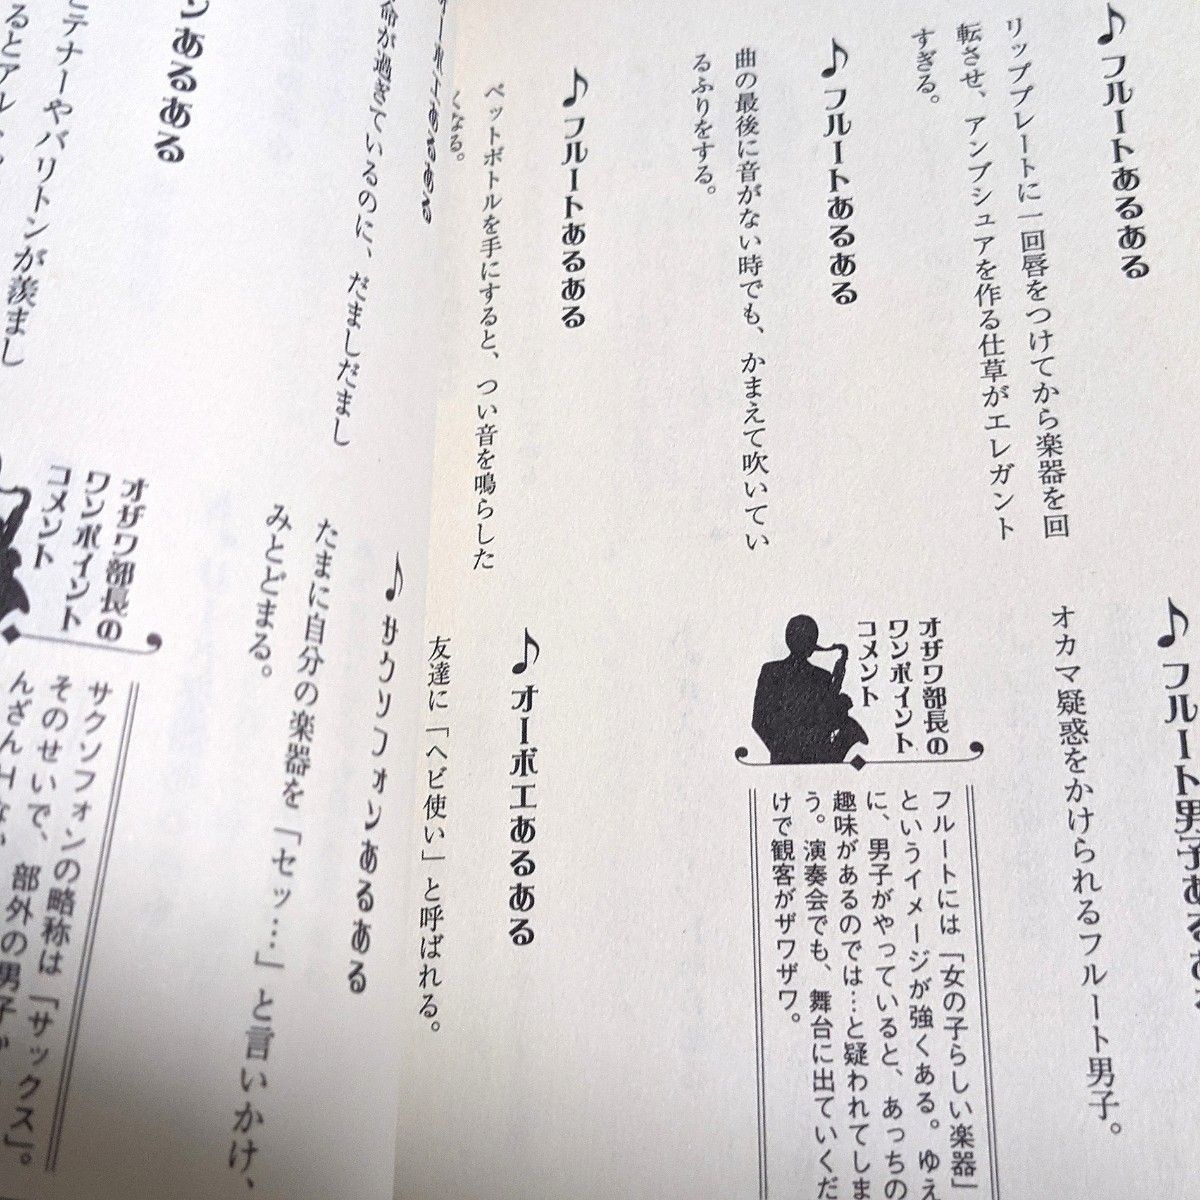 ♪フルートあるある
リッププレートに一回唇をつけてから楽器を回
転させ、アンブシュアを作る仕草がエレガント
すぎる。
♪フルートあるある
曲の最後に音がない時でも、かまえて吹いてい
るふりをする。
♪フルートあるある
ペットボトルを手にすると、つい音を鳴らした
くなる。
♪フルート男子あるある
オカマ疑惑をかけられるフルート男子。
オザワ部長の
ワンポイント
コメント
フルートには「女の子らしい楽器」
というイメージが強くある。ゆえ
に、男子がやっていると、あっちの
趣味があるのでは…と疑われてしま
う。演奏会でも、舞台に出ていくだ
けで観客がザワザワ。
♪オーボエあるある
友達に「ヘビ使い」と呼ばれる。
オーボエあるある
命が過ぎているのに、だましだまし
ンあるある
テナーやバリトンが羨まし
るとアル
♪サクソフォンあるある
たまに自分の楽器を「セッ…」と言いかけ、
みとどまる。
オザワ部長の
ワンポイント
コメント
サクソフォンの略称は「サックス」。
そのせいで、部外の男子か
んざん